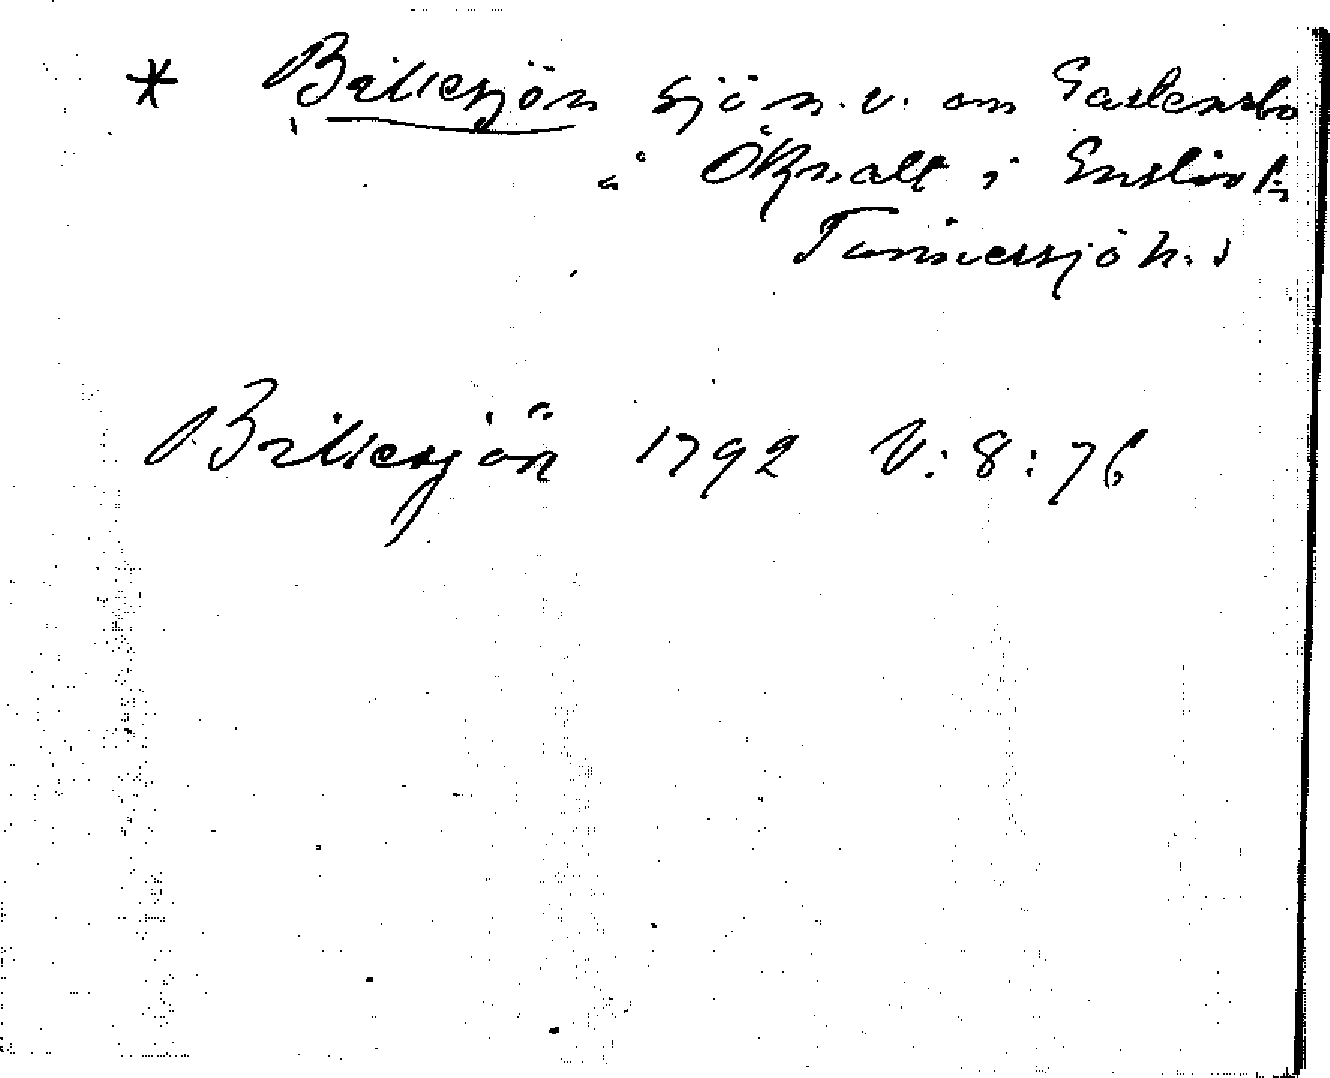 * Brillesjön sjö n.v. om
å Öknalt i Enslövs
Tönnersjö h.
Brillesjön 1792 V:8:76